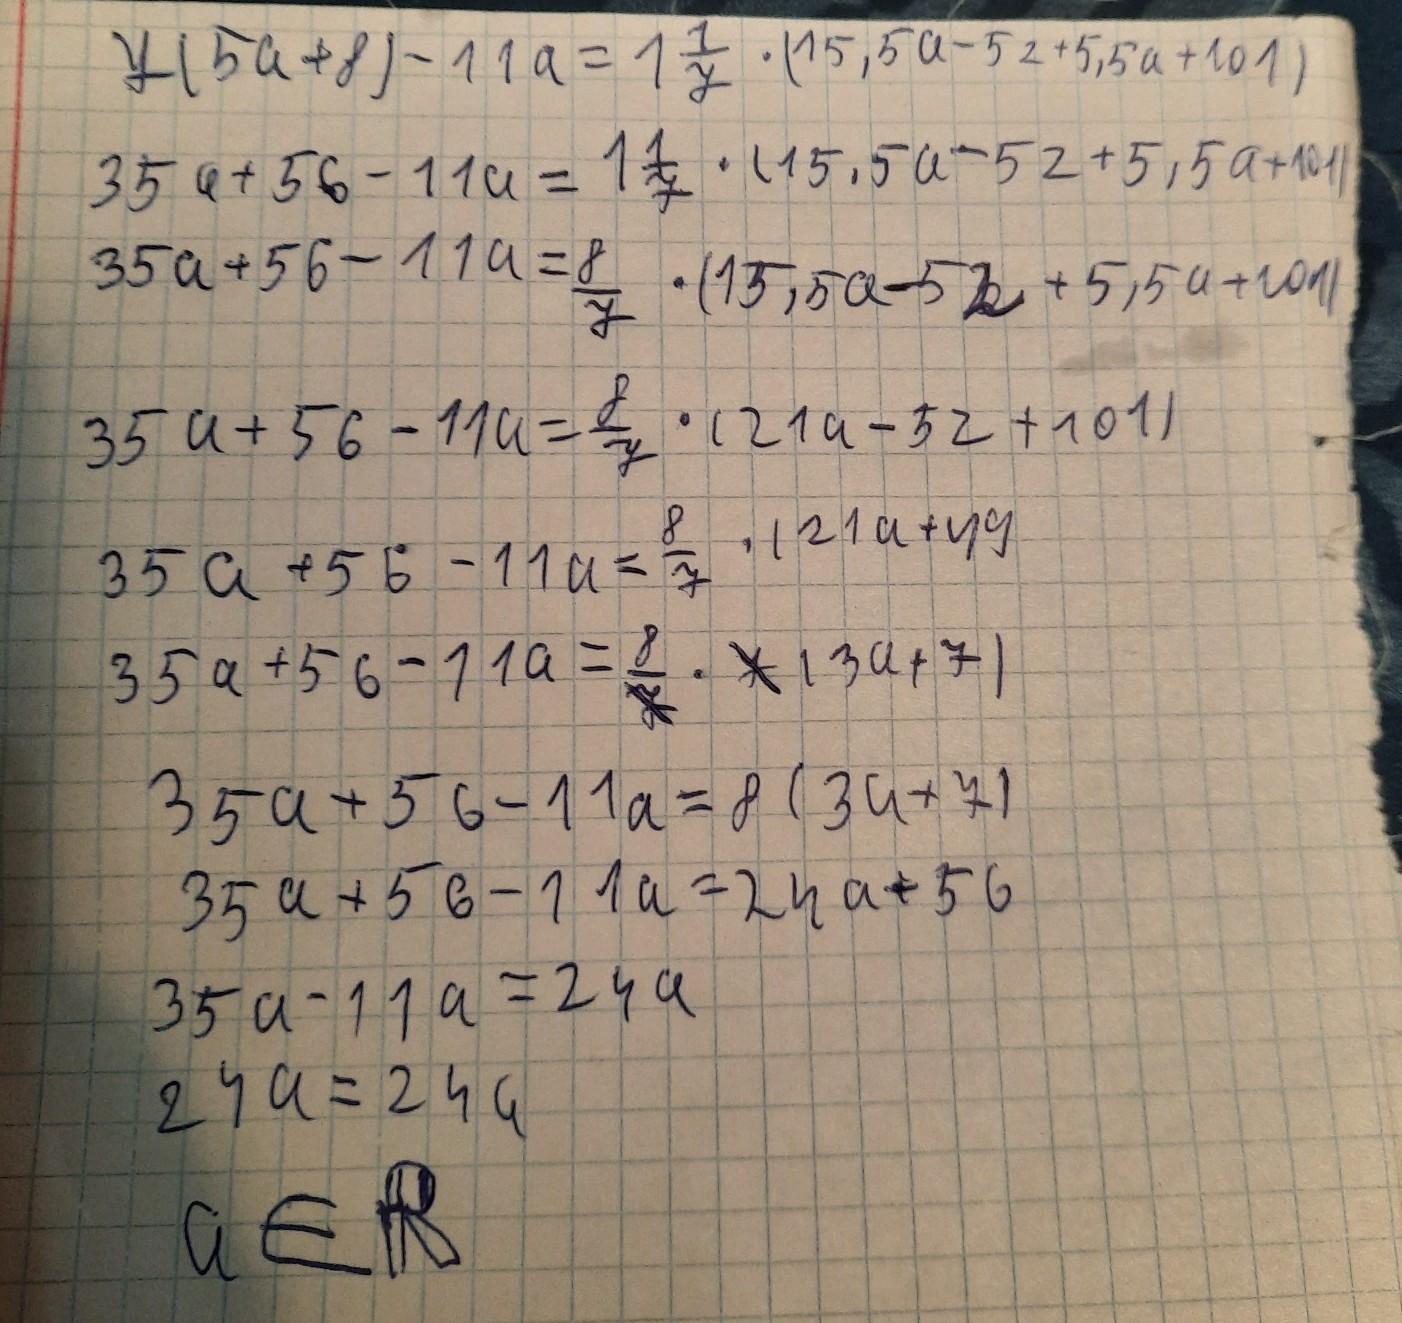 7(5a+8)-11a=1 1/7 ·(15,5a-52+5,5a+101)
35a+56-11a=1 1/7 ·(15,5a-52+5,5a+101)
35a+56-11a=8/7 ·(15,5a-52+5,5a+101)
35a+56-11a=8/7 ·(21a-52+101)
35a+56-11a=8/7 ·(21a+49
35a+56-11a=8/7 · 7(3a+7)
35a+56-11a=8(3a+7)
35a+56-11a=24a+56
35a-11a=24a
24a=24a
a∈ℝ